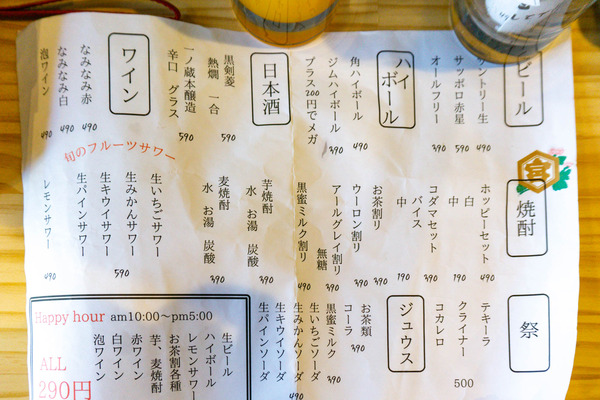 ビール
サントリー生 490
サッポロ赤星 590
オールフリー 490
ハイボール
角ハイボール 490
ジムハイボール 390
プラス200円でメガ
日本酒
黒剣菱
熱燗 一合 590
一ノ蔵本醸造
辛口 グラス 590
ワイン
なみなみ赤 490
なみなみ白 490
泡ワイン 490
焼酎
ホッピーセット 490
白
中 190
コダマセット 390
バイス
中 190
お茶割り 390
ウーロン割り 390
アールグレイ割り 390
無糖
黒蜜ミルク割り 490
芋焼酎
水 お湯 炭酸 390
麦焼酎
水 お湯 炭酸 390
旬のフルーツサワー
生いちごサワー
生みかんサワー 590
生キウイサワー
生パインサワー
レモンサワー 490
祭
テキーラ
クライナー 500
コカレロ
ジュウス
お茶類 390
コーラ
黒蜜ミルク 390
生いちごソーダ
生みかんソーダ 490
生キウイソーダ
生パインソーダ
Happy hour am10:00〜pm5:00
生ビール
ハイボール
レモンサワー
お茶割各種
芋、麦焼酎
赤ワイン
白ワイン
泡ワイン
ALL
290円